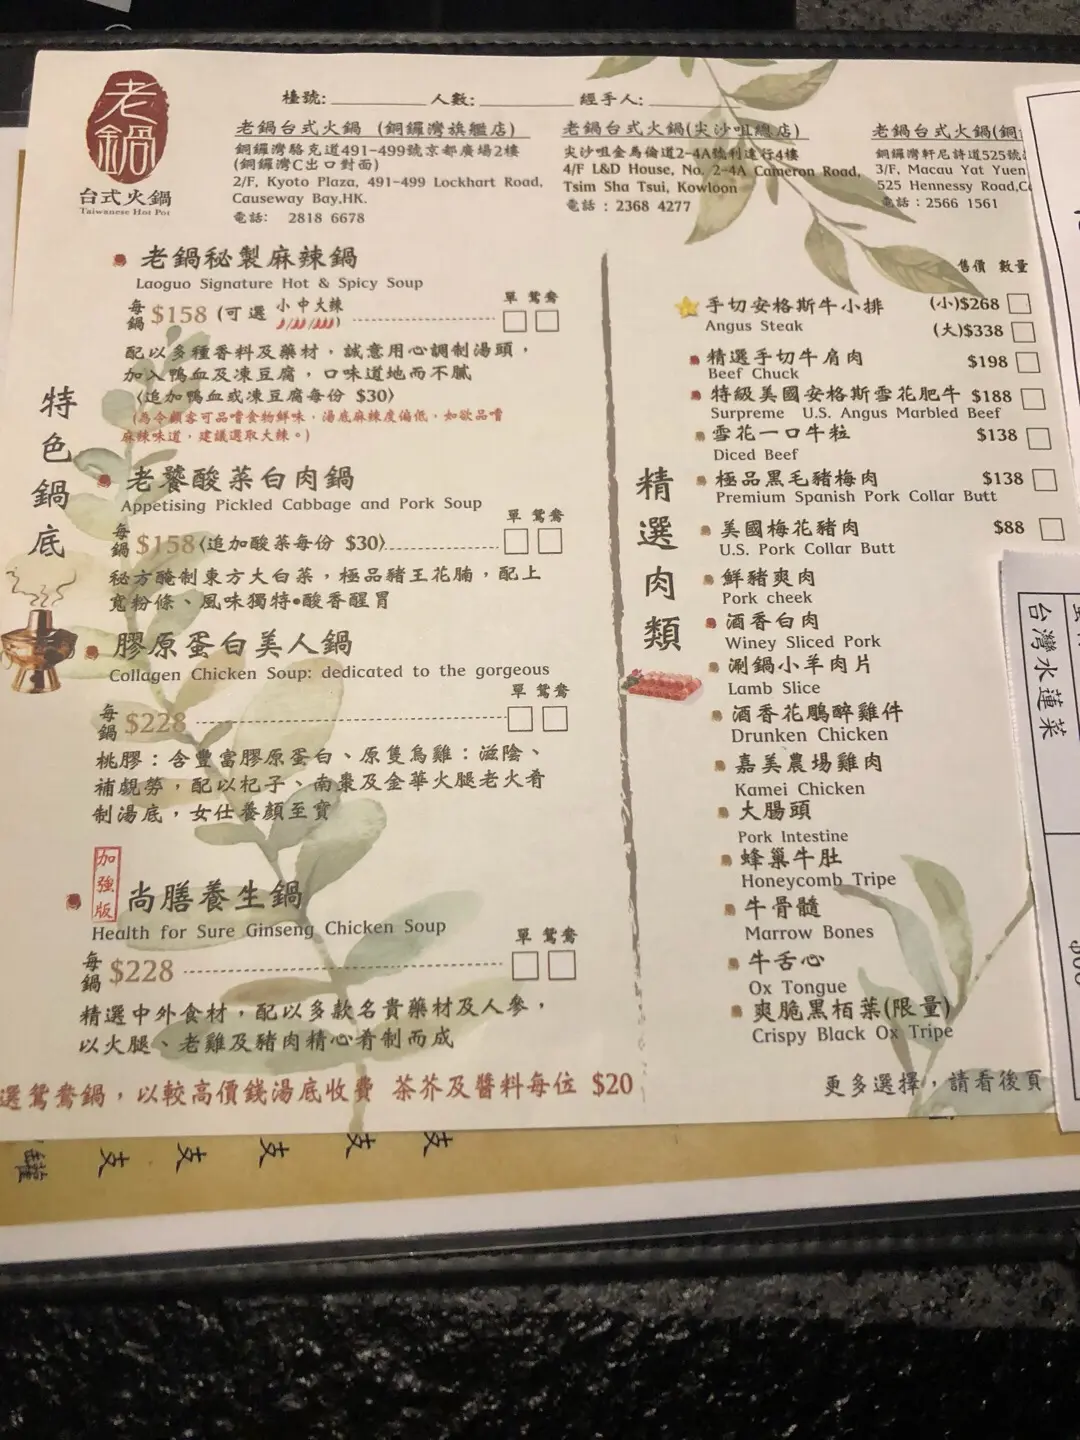 老鍋
台式火鍋
Taiwanese Hot Pot
檯號: 人數: 經手人:
老鍋台式火鍋 (銅鑼灣旗艦店)
銅鑼灣駱克道491-499號京都廣場2樓
(銅鑼灣C出口對面)
2/F, Kyoto Plaza, 491-499 Lockhart Road,
Causeway Bay,HK.
電話: 2818 6678
老鍋台式火鍋(尖沙咀總店)
尖沙咀金馬倫道2-4A號利達行4樓
4/F L&D House, No. 2-4A Cameron Road,
Tsim Sha Tsui, Kowloon
電話：2368 4277
老鍋台式火鍋(銅
銅鑼灣軒尼詩道525號
3/F, Macau Yat Yuen
525 Hennessy Road,C
電話：2566 1561
特色鍋底
老鍋秘製麻辣鍋
Laoguo Signature Hot & Spicy Soup
單 鴛鴦
每鍋 $158 (可選 小 中 大辣)
配以多種香料及藥材，誠意用心調制湯頭，
加入鴨血及凍豆腐，口味道地而不膩
〈追加鴨血或凍豆腐每份 $30〉
(為令顧客可品嚐食物鮮味，湯底麻辣度偏低，如欲品嚐
麻辣味道，建議選取大辣。)
老饕酸菜白肉鍋
Appetising Pickled Cabbage and Pork Soup
單 鴛鴦
每鍋 $158〈追加酸菜每份 $30〉
秘方醃制東方大白菜，極品豬王花腩，配上
寬粉條、風味獨特•酸香醒胃
膠原蛋白美人鍋
Collagen Chicken Soup: dedicated to the gorgeous
單 鴛鴦
每鍋 $228
桃膠：含豐富膠原蛋白、原隻烏雞：滋陰、
補虧勞，配以杞子、南棗及金華火腿老火肴
制湯底，女仕養顏至寶
加強版
尚膳養生鍋
Health for Sure Ginseng Chicken Soup
單 鴛鴦
每鍋 $228
精選中外食材，配以多款名貴藥材及人參，
以火腿、老雞及豬肉精心肴制而成
選鴛鴦鍋，以較高價錢湯底收費 茶芥及醬料每位 $20
精選肉類
售價 數量
手切安格斯牛小排 (小)$268
Angus Steak (大)$338
精選手切牛肩肉 $198
Beef Chuck
特級美國安格斯雪花肥牛 $188
Surpreme U.S. Angus Marbled Beef
雪花一口牛粒 $138
Diced Beef
極品黑毛豬梅肉 $138
Premium Spanish Pork Collar Butt
美國梅花豬肉 $88
U.S. Pork Collar Butt
鮮豬爽肉
Pork cheek
酒香白肉
Winey Sliced Pork
涮鍋小羊肉片
Lamb Slice
酒香花鵰醉雞件
Drunken Chicken
嘉美農場雞肉
Kamei Chicken
大腸頭
Pork Intestine
蜂巢牛肚
Honeycomb Tripe
牛骨髓
Marrow Bones
牛舌心
Ox Tongue
爽脆黑栢葉(限量)
Crispy Black Ox Tripe
更多選擇，請看後頁
台灣水蓮菜
罐 支 支 支 支 支